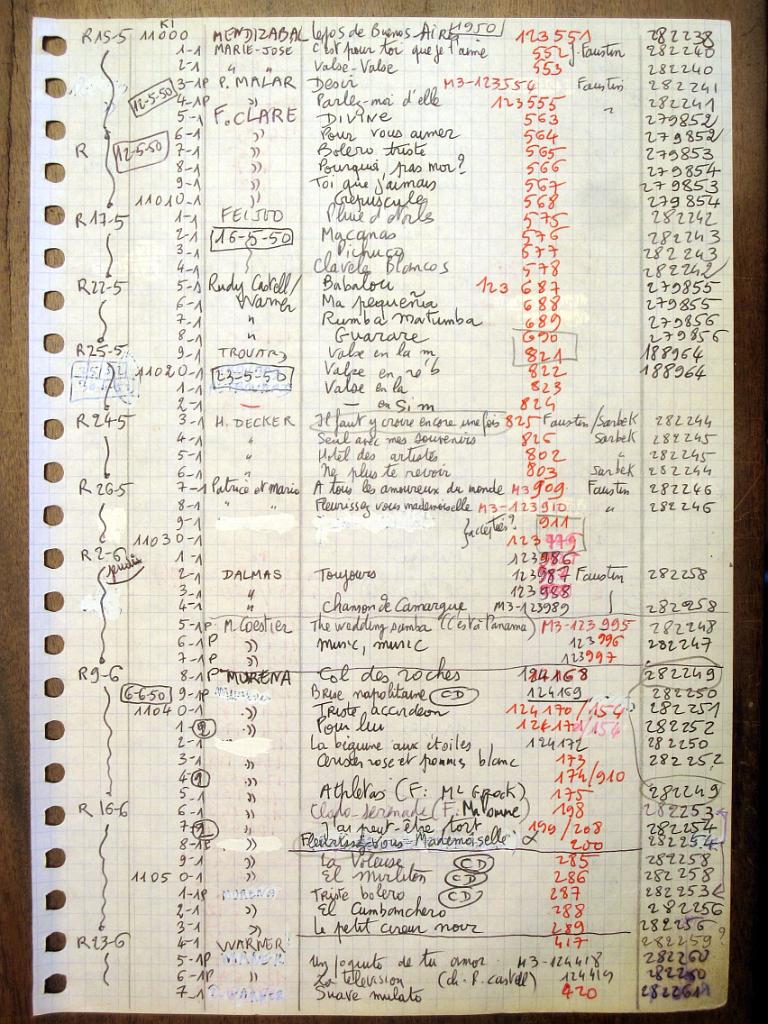 K1
R15-5 11000 MENDIZABAL Lejos de Buenos AIRES 1950 123551 282238
1-1 MARIE-JOSE C'est pour toi que je t'aime 552 Faustin 282240
2-1 " " Valse-Valse 553 282240
3-1P P. MALAR Desir M3-123554 Faustin 282241
12-5-50 4-1P " Parlez-moi d'elle 123555 " 282241
5-1 F. CLARE DIVINE 563 279852
6-1 " Pour vous aimer 564 279852
R 12-5-50 7-1 " Bolero triste 565 279853
8-1 " Pourquoi pas moi? 566 279854
9-1 " Toi que j'aimais 567 279853
11010-1 " Crepuscule 568 279854
R17-5 1-1 FEIJOO Pluie d'étoiles 575 282242
2-1 16-5-50 Macanas 576 282243
3-1 Pichuco 577 282243
4-1 Clavels Blancos 578 282242
R22-5 5-1 Rudy Castell/ Babalou 123 687 279855
6-1 Warner Ma pequeña 688 279855
7-1 " Rumba Matumba 689 279856
8-1 " Guarare 690 279856
R25-5 9-1 TROVARJ Valse en la m 821 188964
11020-1 23-5-50 Valse en ré b 822 188964
1-1 Valse en la 823
2-1 — — en Si m 824
R24-5 3-1 H. DECKER Il faut y croire encore une fois 825 Faustin/Sarbek 282244
4-1 " Seul avec mes souvenirs 826 Sarbek 282245
5-1 " Hotel des artistes 802 " 282245
6-1 " Ne plus te revoir 803 Sarbek 282244
R26-5 7-1 Patrice et Mario A tous les amoureux du monde M3 909 Faustin 282246
8-1 " " Fleurissez vous mademoiselle M3-123910 " 282246
9-1 911
11030-1 123 779
R2-6 1-1 123986
jeudi 2-1 DALMAS Toujours 123987 Faustin 282258
3-1 " 123988
4-1 " Chanson de Camargue M3-123989 282258
5-1P M. Coestier The wedding samba (C'est à Panama) M3-123995 282248
6-1P " music, music 123996 282247
7-1P " 123997
R9-6 8-1P MORENA Col des roches 124168 282249
6-6-50 9-1P Brise napolitaine CD 124169 282250
11040-1 " Triste accordeon 124170/154 282251
1-1 " Pour lui 124171/154 282252
2-1 " La biguine aux étoiles 124172 282250
3-1 " Cerisier rose et pommier blanc 173 282252
4-1 " 174/910
5-1 " Athletas (F: Mc G ock) 175 282249
R16-6 6-1 " Clado-Serenade (F: Malomme) 198 282253
7-1 " J'ai peut-être tort 199/208 282254
8-1P " Fleurissez-Vous-Mademoiselle 200 282254
9-1 " La Voleuse CD 285 282258
11050-1 " El Mirliton CD 286 282258
1-1P MORENA Triste bolero CD 287 282253
2-1 " El Cumbanchero 288 282256
3-1 " Le petit cireur noir 289 282256
R23-6 4-1 WARNER 417 282259?
5-1P WARNER Un poquito de tu amor M3-124418 282260
6-1P " La television (ch. R. Castell) 124419 282260
7-1 R. WARNER Suave mulato 420 282261